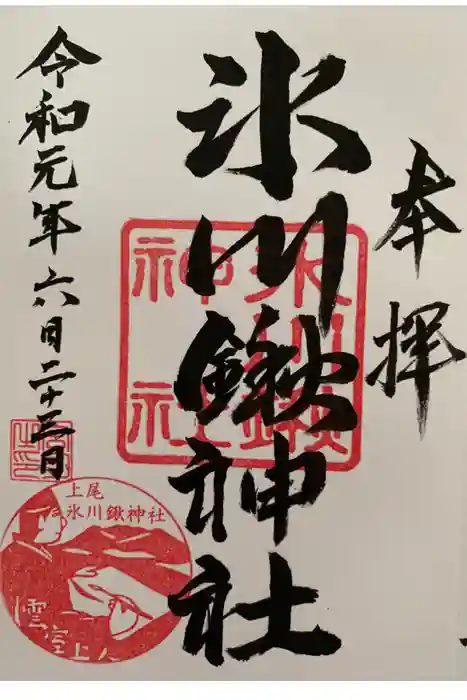 奉拝
氷川鍬神社
令和元年六月二十三日
氷川鍬
神社
上尾
氷川鍬神社
雲室上人